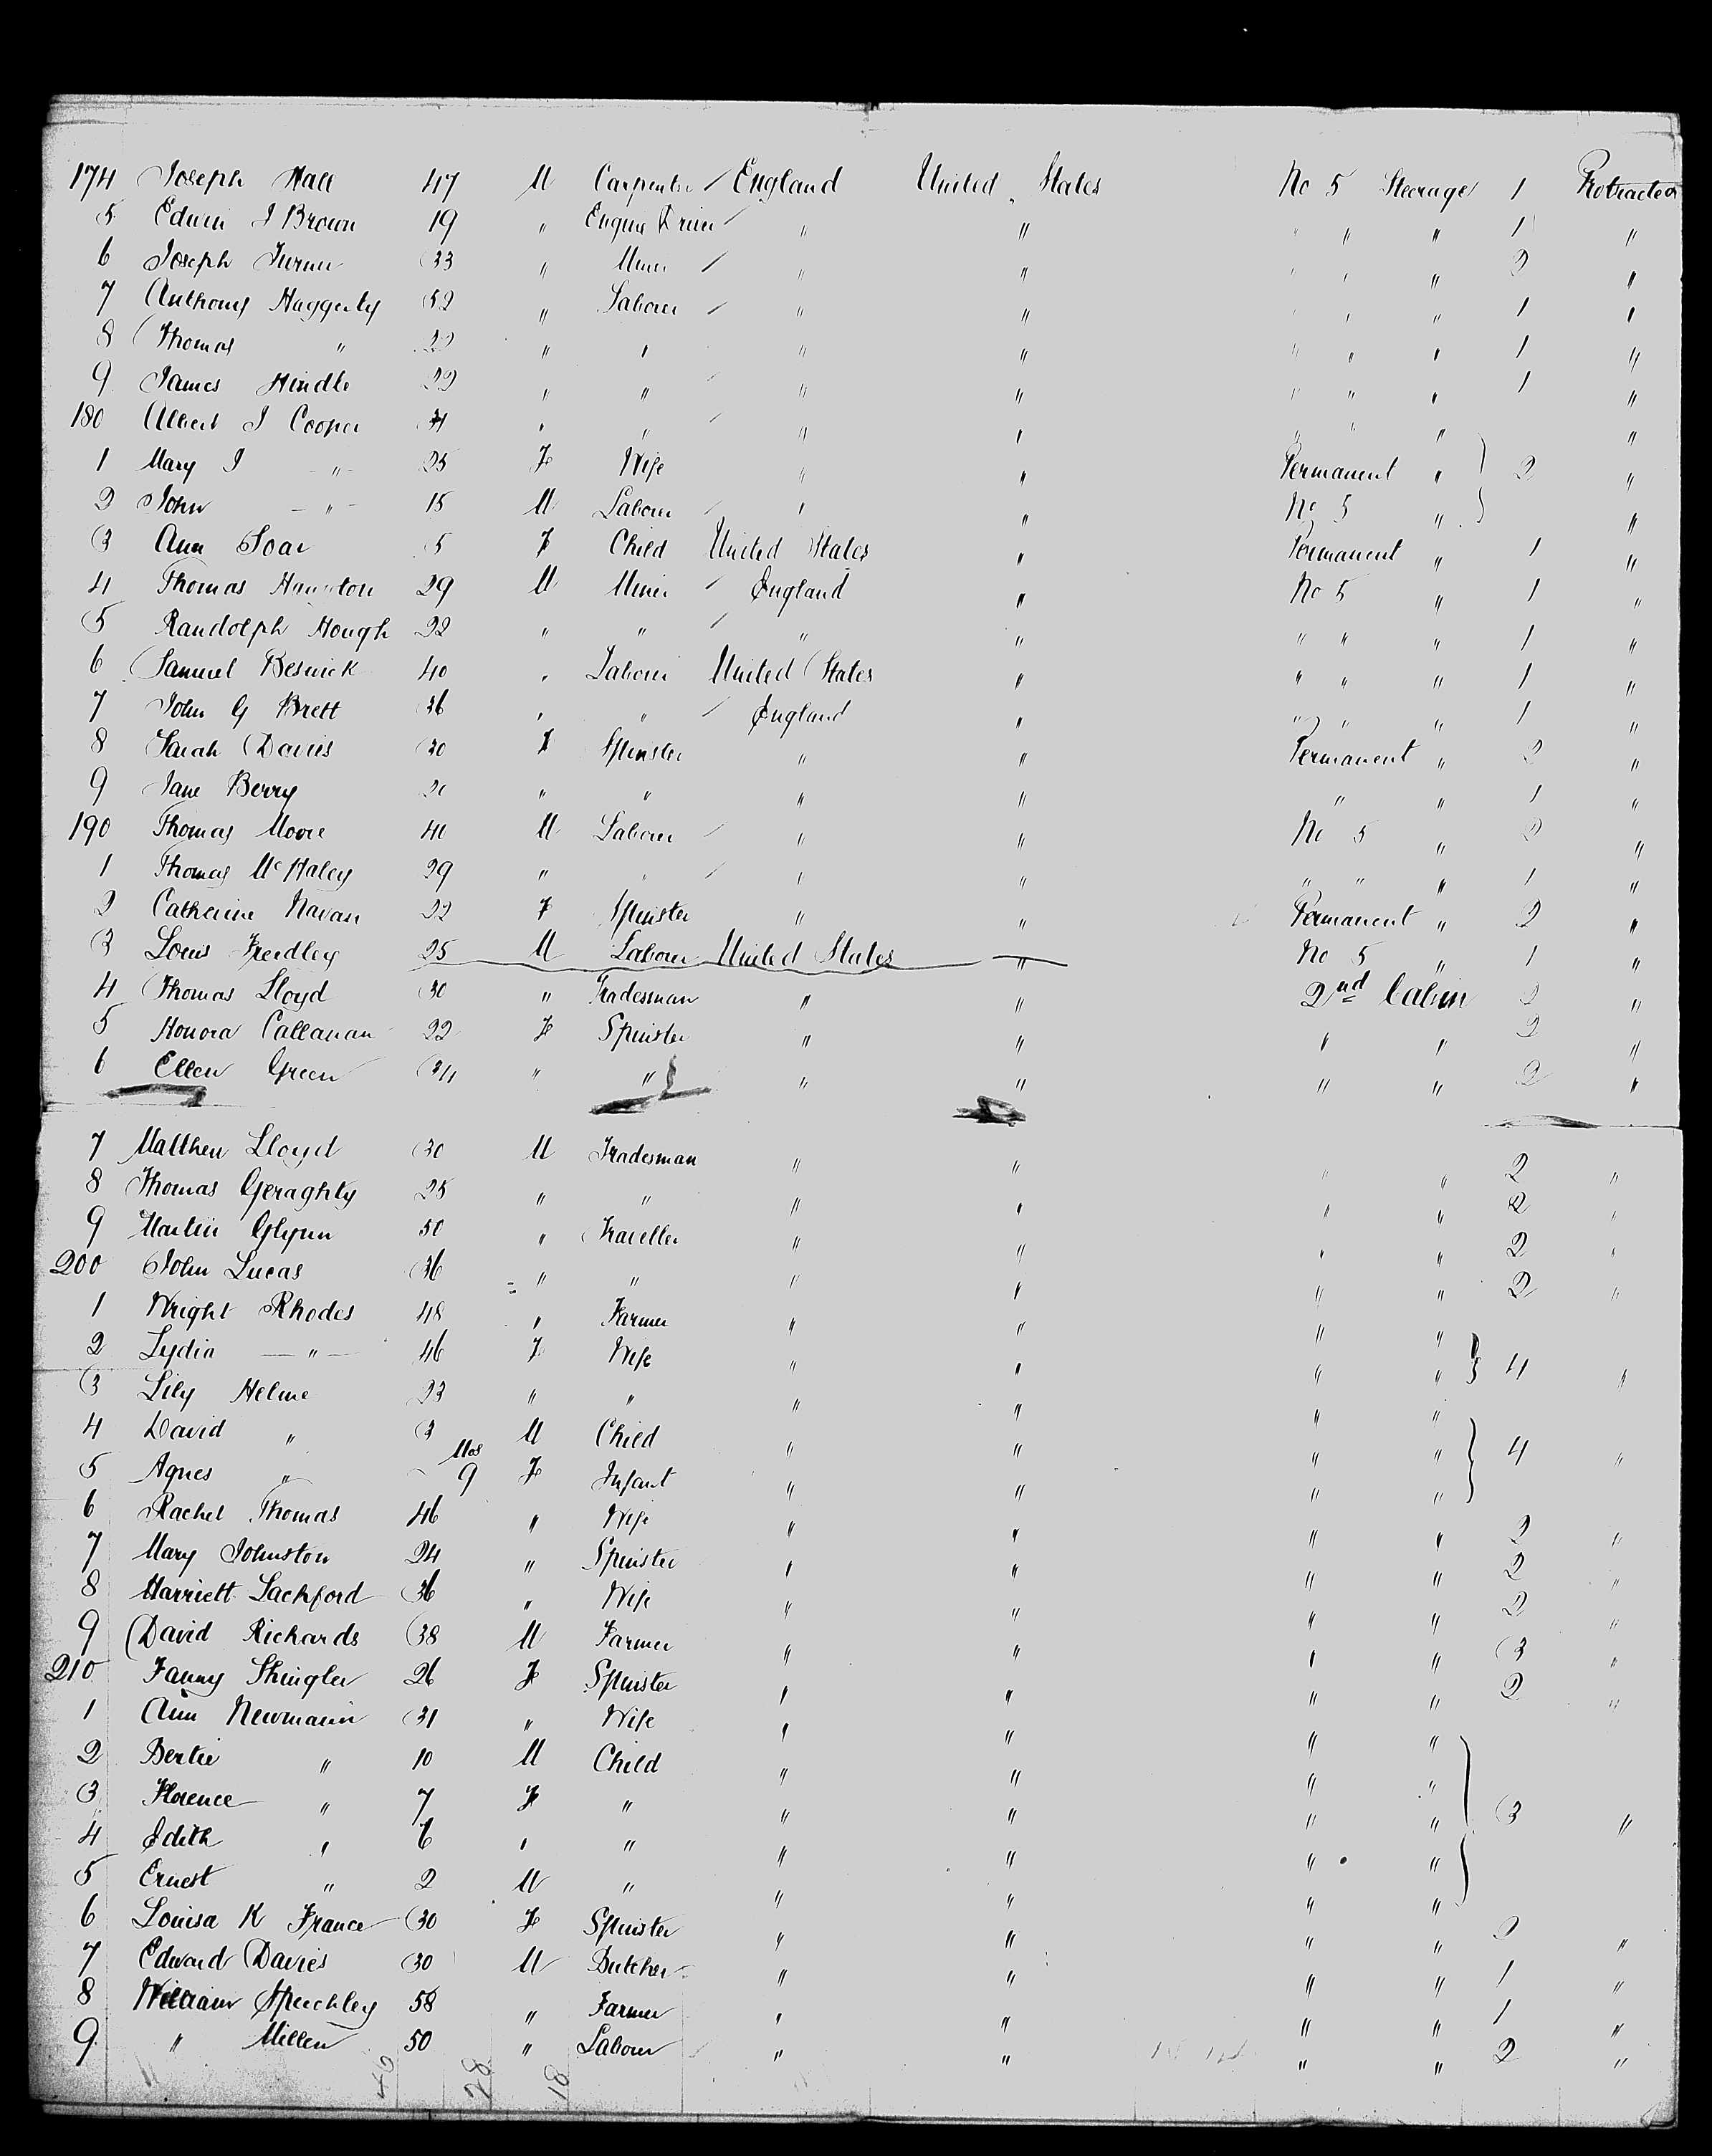 174 Joseph Hall 47 M Carpenter / England United States No 5 Steerage 1 Protracted
5 Edwin J Brown 19 " Engine Driver / " " " " " 1 "
6 Joseph Turner 33 " Miner / " " " " " 2 "
7 Anthony Haggerty 52 " Laborer / " " " " " 1 "
8 Thomas " 22 " " " " " " " 1 "
9 James Hindle 22 " " / " " " " " 1 "
180 Albert J Cooper " " / " " " " " "
1 Mary J " 25 F Wife " " Permanent " } 2 "
2 John " 15 M Laborer / " " No 5 " "
3 Ann Soar 5 F Child United States " Permanent " 1 "
4 Thomas 29 M Miner / England " No 5 " 1 "
5 Randolph Hough 22 " " / " " " " " 1 "
6 Samuel Beswick 40 " Laborer United States " " " " 1 "
7 John G Brett 36 " " / England " " " " 1 "
8 Sarah Davies 30 F Spinster " " Permanent " 2 "
9 Jane Berry " " " " " " 1 "
190 Thomas Moore 40 M Laborer / " " No 5 " 2 "
1 Thomas McHaley 29 " " / " " " " " 1 "
2 Catherine Navan 22 F Spinster " " Permanent " 2 "
3 Louis Freedley 25 M Laborer United States " No 5 " 1 "
4 Thomas Lloyd 30 " Tradesman " " 2nd Cabin 2 "
5 Honora Callanan 22 F Spinster " " " " 2 "
6 Ellen Green 34 " " " " " " 2 "
7 Matthew Lloyd 30 M Tradesman " " " " 2 "
8 Thomas Geraghty 25 " " " " " " 2 "
9 Martin Glynn 50 " Traveller " " " " 2 "
200 John Lucas 36 " " " " " " 2 "
1 Wright Rhodes 48 " Farmer " " " "
2 Lydia " 46 F Wife " " " " } 4 "
3 Lily Helme 23 " " " " " "
4 David " 3 M Child " " " " } 4 "
5 Agnes " Mos 9 F Infant " " " "
6 Rachel Thomas 46 " Wife " " " " 2 "
7 Mary Johnston 24 " Spinster " " " " 2 "
8 Harriett Lackford 36 " Wife " " " " 2 "
9 David Richards 38 M Farmer " " " " 3 "
210 Fanny Shingler 26 F Spinster " " " " 2 "
1 Ann Newmann 31 " Wife " " " "
2 Bertie " 10 M Child " " " "
3 Florence " 7 F " " " " " } 3 "
4 Edith " 6 " " " " " "
5 Ernest " 2 M " " " " "
6 Louisa K France 30 F Spinster " " " " 2 "
7 Edward Davies 30 M Butcher " " " " 1 "
8 William Speechley 58 " Farmer " " " " 1 "
9 " Millen 50 " Laborer " " " " 2 "
28 18